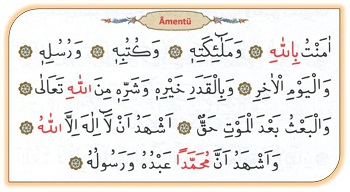 Âmentü
اٰمَنْتُ بِاللّٰهِ ۞ وَمَلٰٓئِكَتِهٖ ۞ وَكُتُبِهٖ ۞ وَرُسُلِهٖ ۞
وَالْيَوْمِ الْاٰخِرِ ۞ وَبِالْقَدَرِ خَيْرِهٖ وَشَرِّهٖ مِنَ اللّٰهِ تَعَالٰى
وَالْبَعْثُ بَعْدَ الْمَوْتِ حَقٌّ ۞ اَشْهَدُ اَنْ لَٓا اِلٰهَ اِلَّا اللّٰهُ
وَاَشْهَدُ اَنَّ مُحَمَّدًا عَبْدُهُ وَرَسُولُهُ ۞